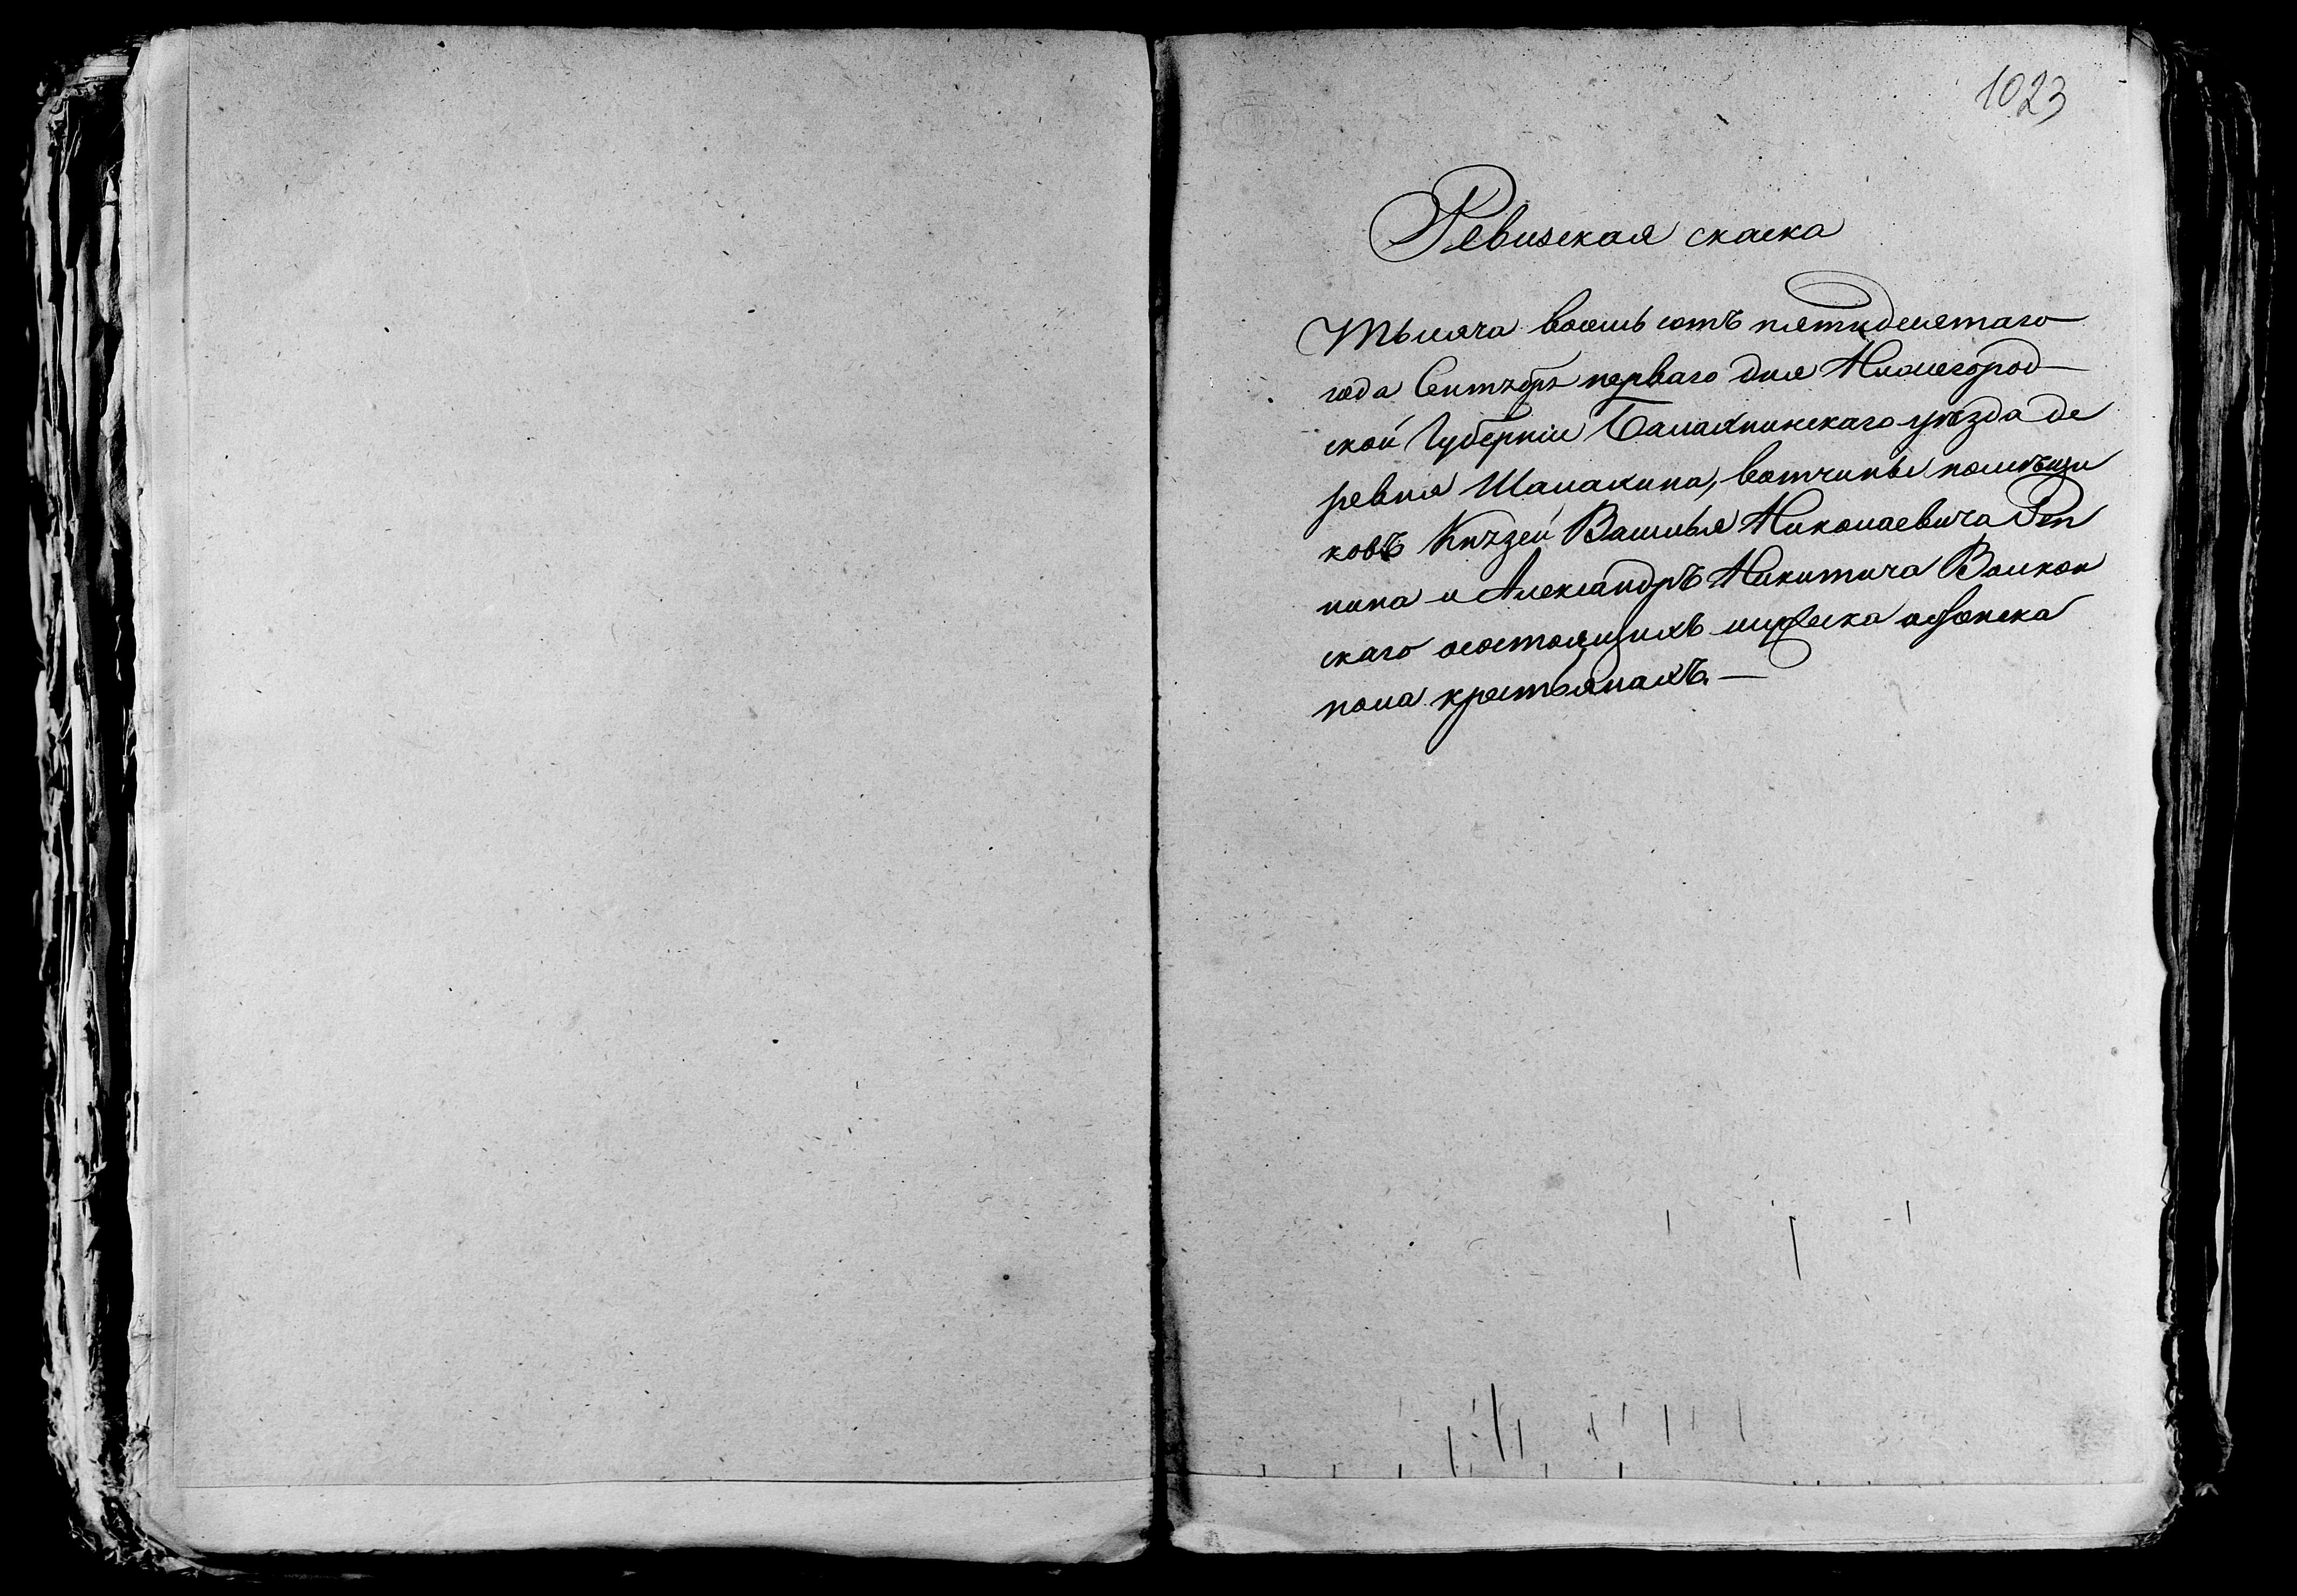 1023
Ревизская скаска
Тысяча восемь сотъ пятидесятаго
года Сентября перваго дня Нижегород
ской Губерніи Балахнинскаго уѣзда де
ревня Шалахина, вотчины помѣщи
ковъ Князей Василья Николаевича Реп
нина и Александръ Никитича Волкон
скаго осостоящихъ мужеска иженска
пола крестьянахъ. —